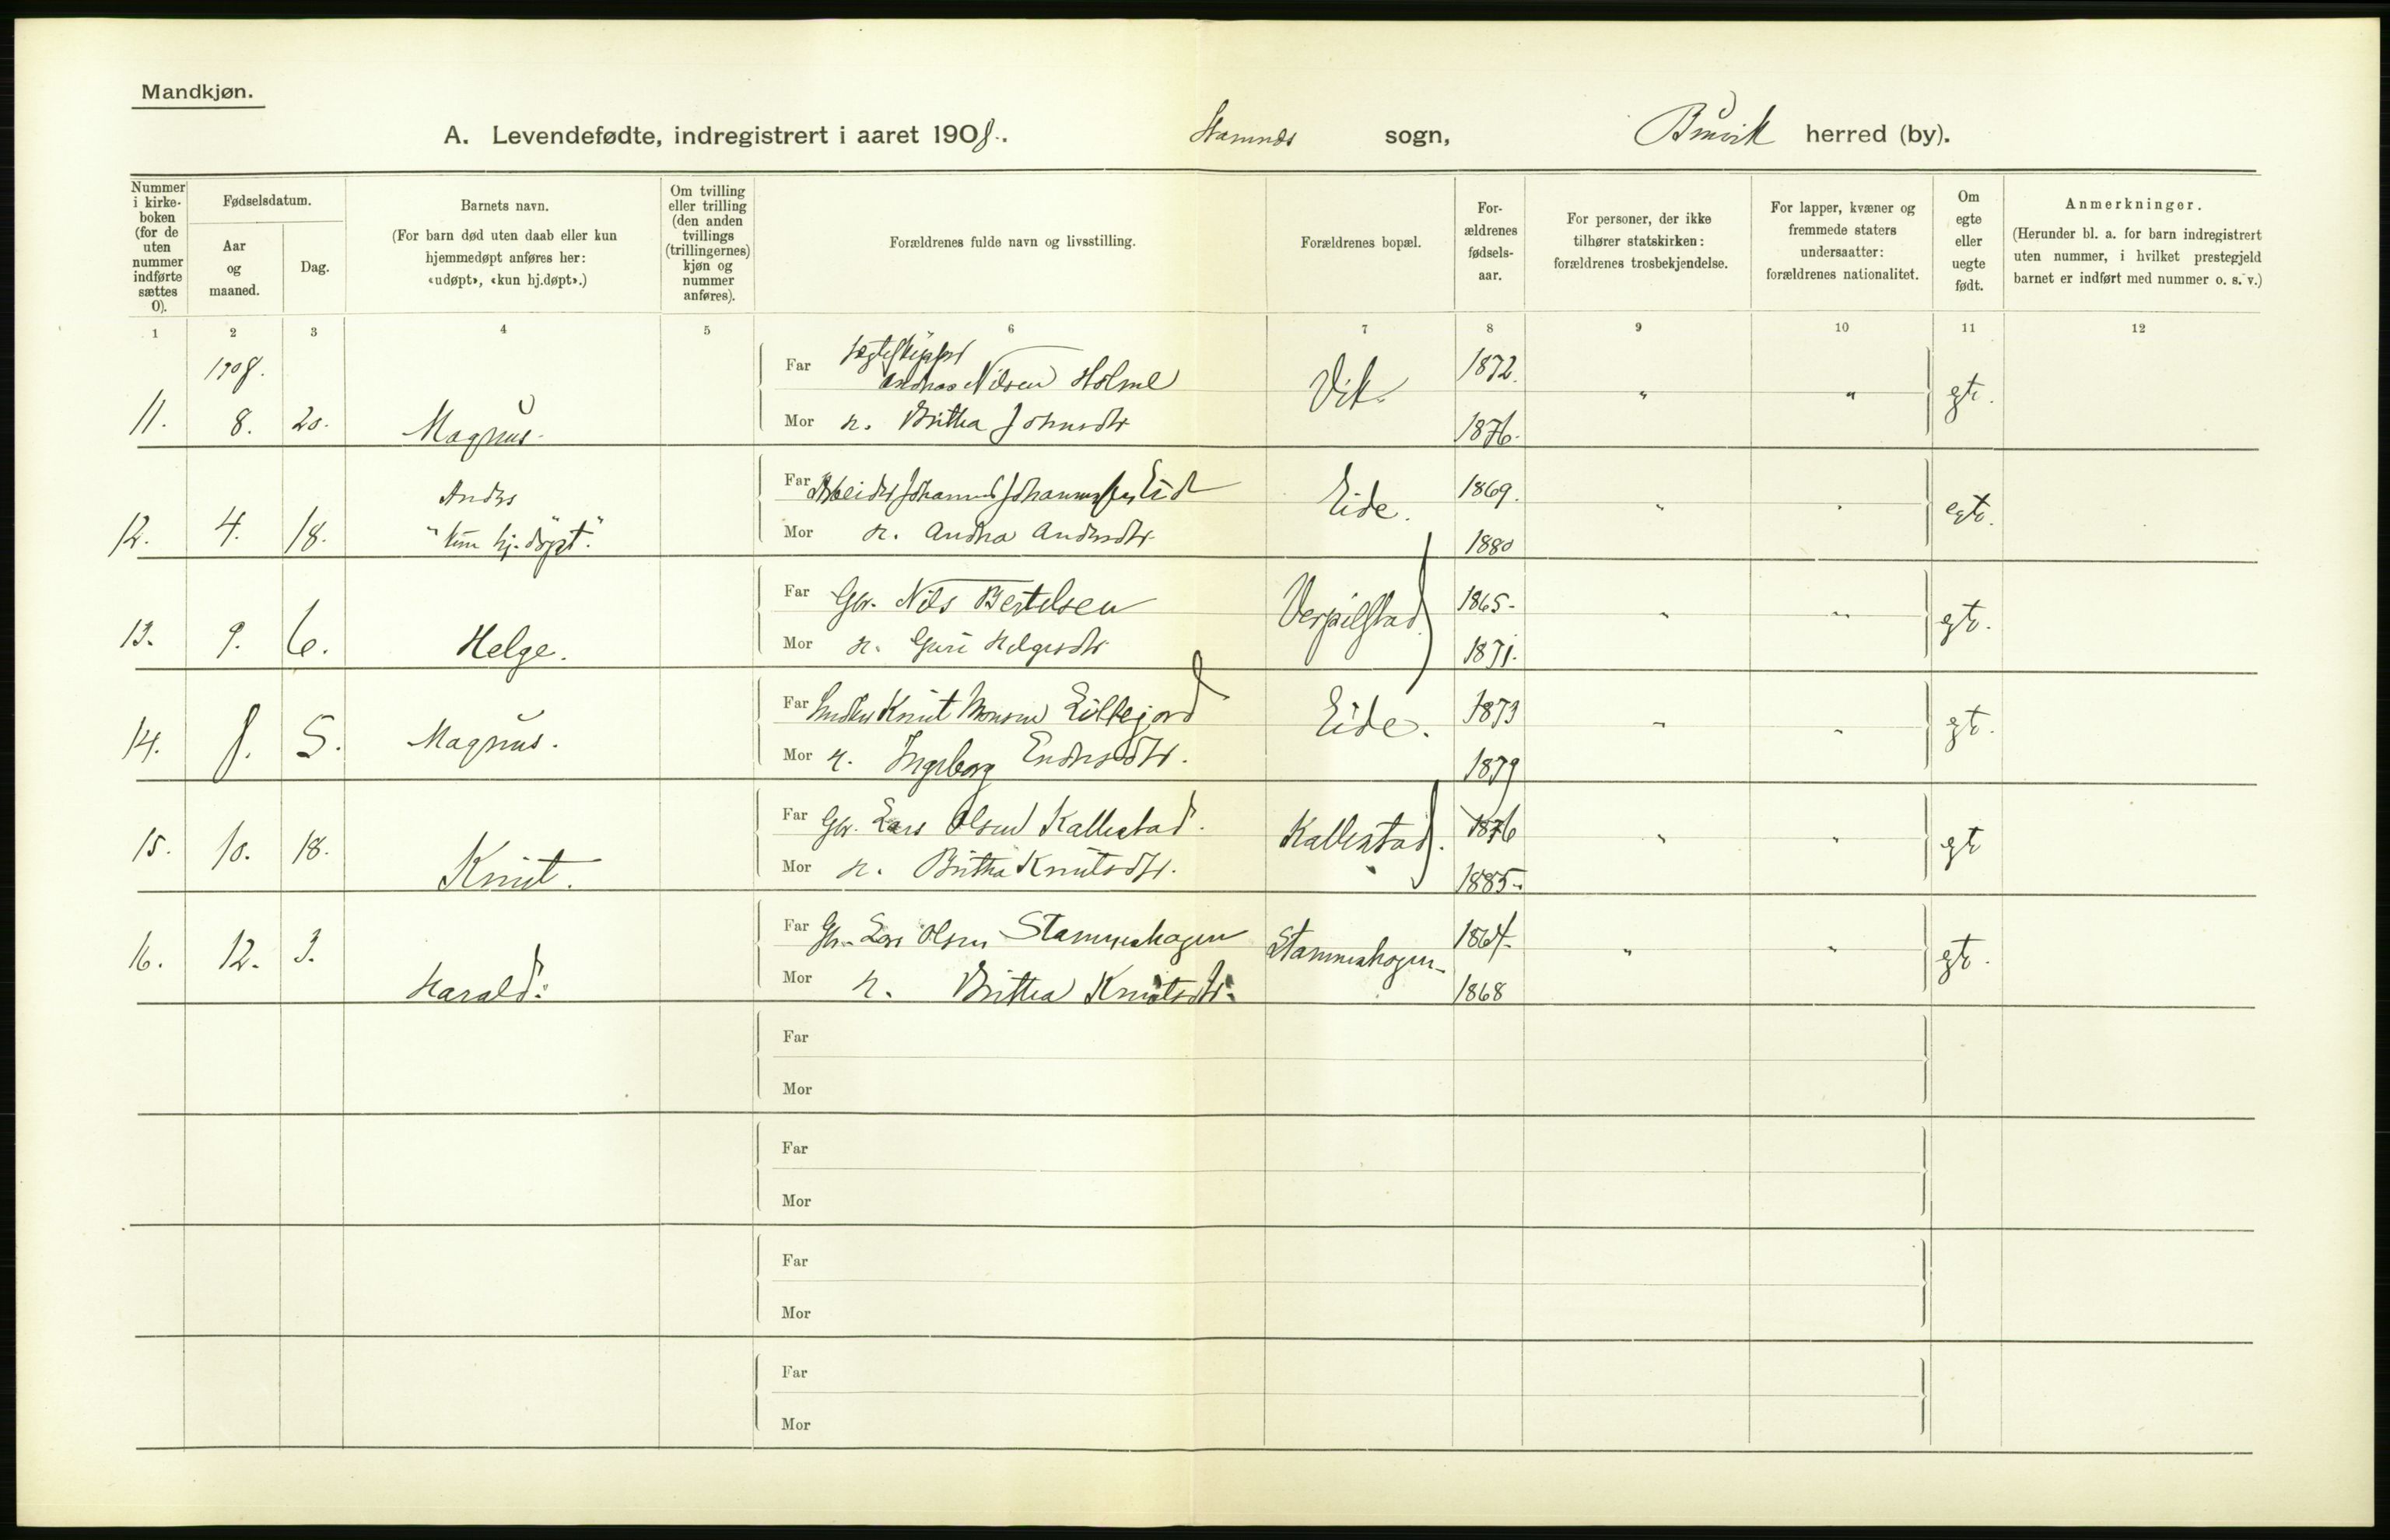 Mandkjøn.
A. Levendefødte, indregistrert i aaret 1908. Stamnes sogn, Bruvik herred (by).
Nummer i kirke-boken (for de uten nummer indførte sættes 0).
Fødselsdatum.
Aar og maaned.
Dag.
Barnets navn.
(For barn død uten daab eller kun hjemmedøpt anføres her: «udøpt», «kun hj.døpt».)
Om tvilling eller trilling (den anden tvillings (trillingernes) kjøn og nummer anføres).
Forældrenes fulde navn og livsstilling.
Forældrenes bopæl.
For-ældrenes fødsels-aar.
For personer, der ikke tilhører statskirken: forældrenes trosbekjendelse.
For lapper, kvæner og fremmede staters undersaatter: forældrenes nationalitet.
Om egte eller uegte født.
Anmerkninger.
(Herunder bl. a. for barn indregistrert uten nummer, i hvilket prestegjeld barnet er indført med nummer o. s. v.)
1 2 3 4 5 6 7 8 9 10 11 12
1908.
Far Jægteskipper Andreas Nilsen Holme Vik. 1872. " " egte.
11. 8. 20. Magnus. Mor H. Brittha Johnsdtr 1876.
Anders Far Arbeider Johannes Johannessen Eide Eide. 1869. " " egte.
12. 4. 18. "kun hj. döpt". Mor H. Andrea Andersdtr 1880
Far Gbr. Nils Bertelsen Verpilstad 1865. " " egte.
13. 9. 6. Helge. Mor H. Guri Helgesdtr 1871.
Far Knut Monsen Lillejord Eide. 1873 " " egte.
14. 8. 5. Magnus. Mor H. Ingeborg Endresdtr. 1879
Far Gbr. Lars Olsen Kallestad. Kallestad. 1876 " " egte
15. 10. 18. Knut. Mor H. Brittha Knutsdtr. 1885.
Far Gbr. Lars Olsen Stammeshagen Stammeshagen. 1864. " " egte.
16. 12. 3. Harald. Mor H. Brittha Knutsdtr. 1868
Far
Mor
Far
Mor
Far
Mor
Far
Mor